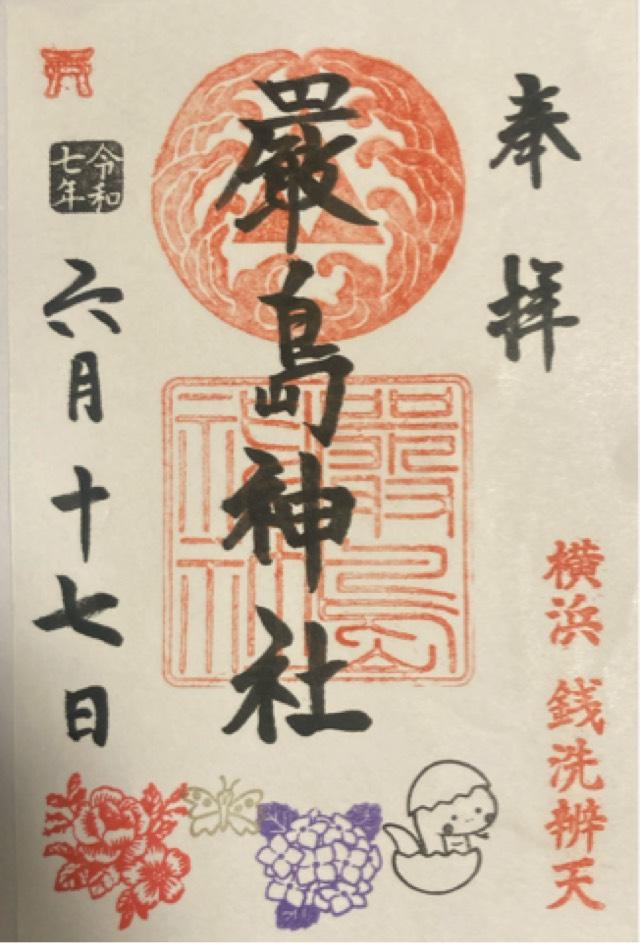 奉拝
横浜 銭洗辨天
嚴島神社
嚴島神社
令和七年
六月十七日